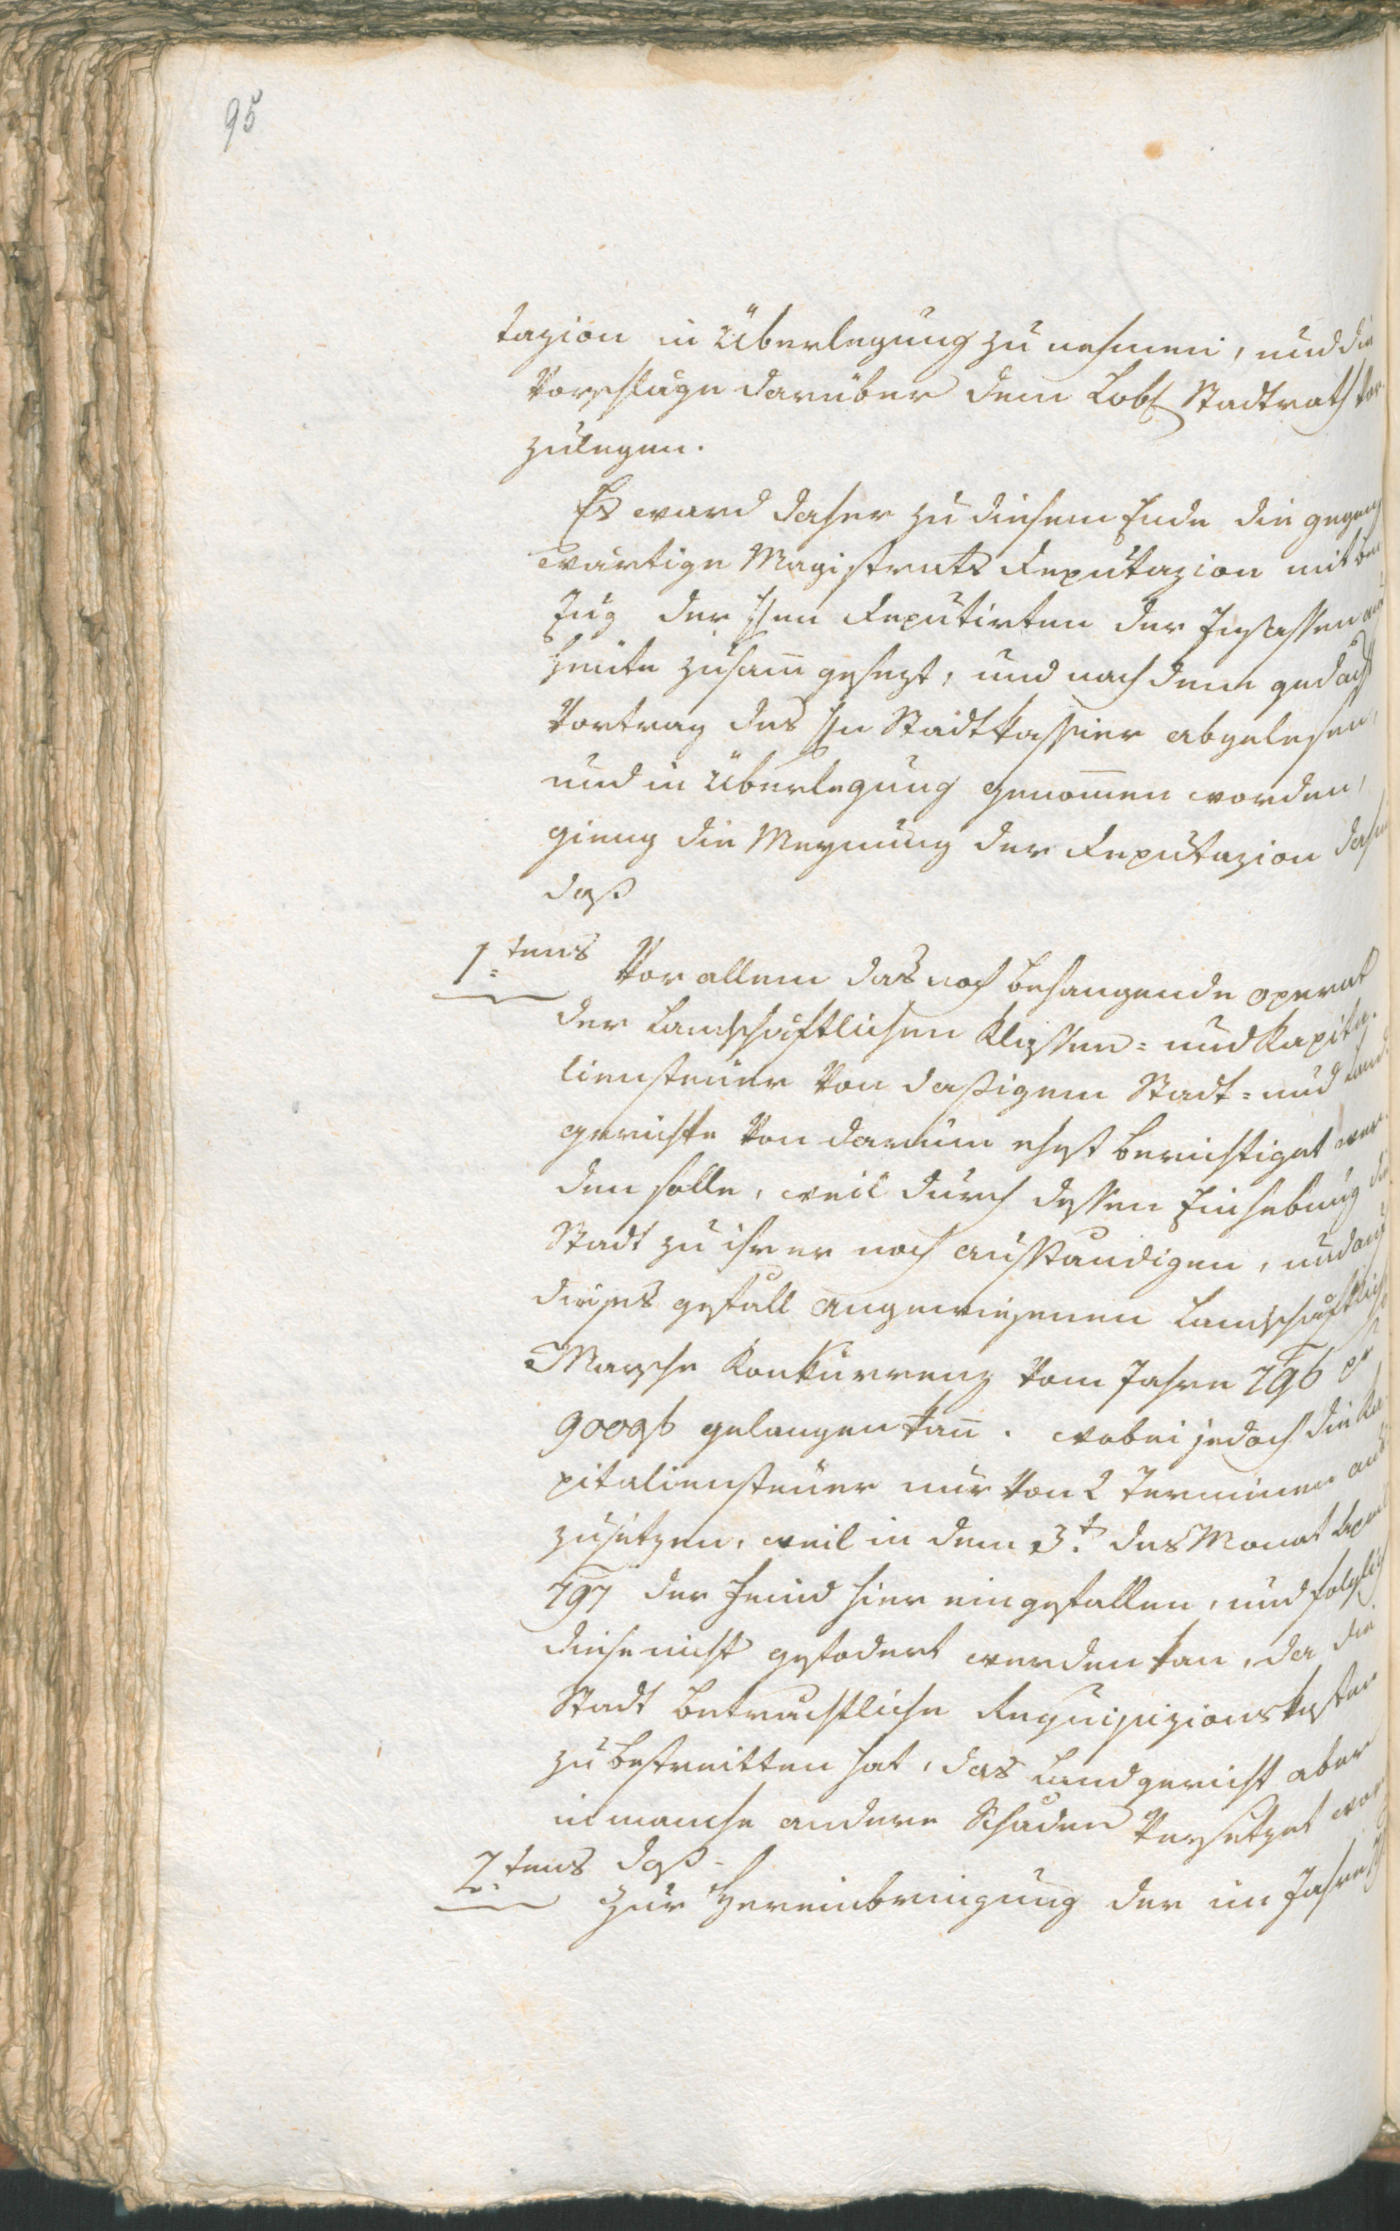 95
tazion in Überlegung zu nehmen, und die
Vorschläge darüber dem Lobl Stadtrath vor
zulegen.
Es ward daher zu diesem Ende die gegen
wärtige Magistrats Deputazion mit bei
Zug der Hen Deputirten der Insassen auf
heute zusam̅ gesezt, und nach dem gedacht
Vortrag des Hn Stadtkassier abgelesen,
und in Überlegung genom̅en worden,
gieng die Meynung der Deputazion dahin
daß
1tens Vor allem das noch behangende operat
der Landschäftlichen Klassen= und Kapita-
liensteuer von dasigem Stadt= und Land
gerichte von darum ehest berichtiget wer
den solle, weil durch dessen Einhebung die
Stadt zu ihrer noch ausständigen, und auf
dieses gefäll angewiesenen Landschäftlich
Marsche Konkurrenz vom Jahre 796 pr
900 gelangen kan̅. wobei jedoch die Ka
pitaliensteuer nur von 2 Terminen an
zusetzen, weil in dem 3t des Monat April
797 der Feind hier eingefallen, und folglich
diese nicht gefodert werden kan, da die
Stadt beträchtliche Requisizionskosten
zu bestreitten hat, das Landgericht aber
in manche andere Schäden versetzet wor
2tens daß
zur Hereinbringung der im Jahre